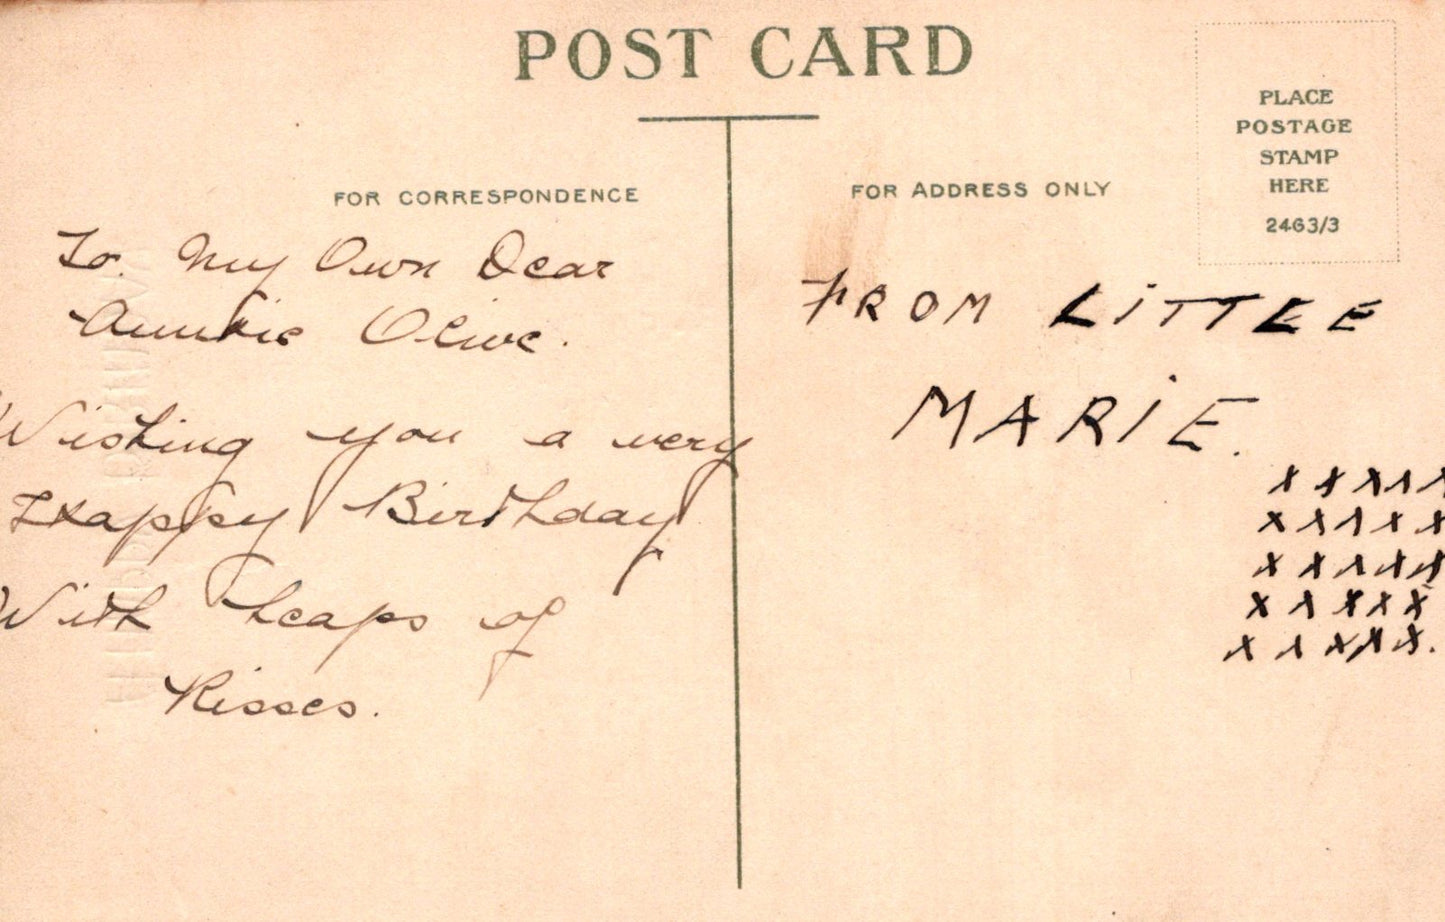 POST CARD
PLACE
POSTAGE
STAMP
HERE
2463/3
FOR CORRESPONDENCE
FOR ADDRESS ONLY
To. My Own Dear
Auntie Olive.
Wishing you a very
Happy Birthday
With heaps of
Kisses.
FROM LiTTEE
MARiE.
x x x x x
x x x x x
x x x x x
x x x x x
x x x x x.